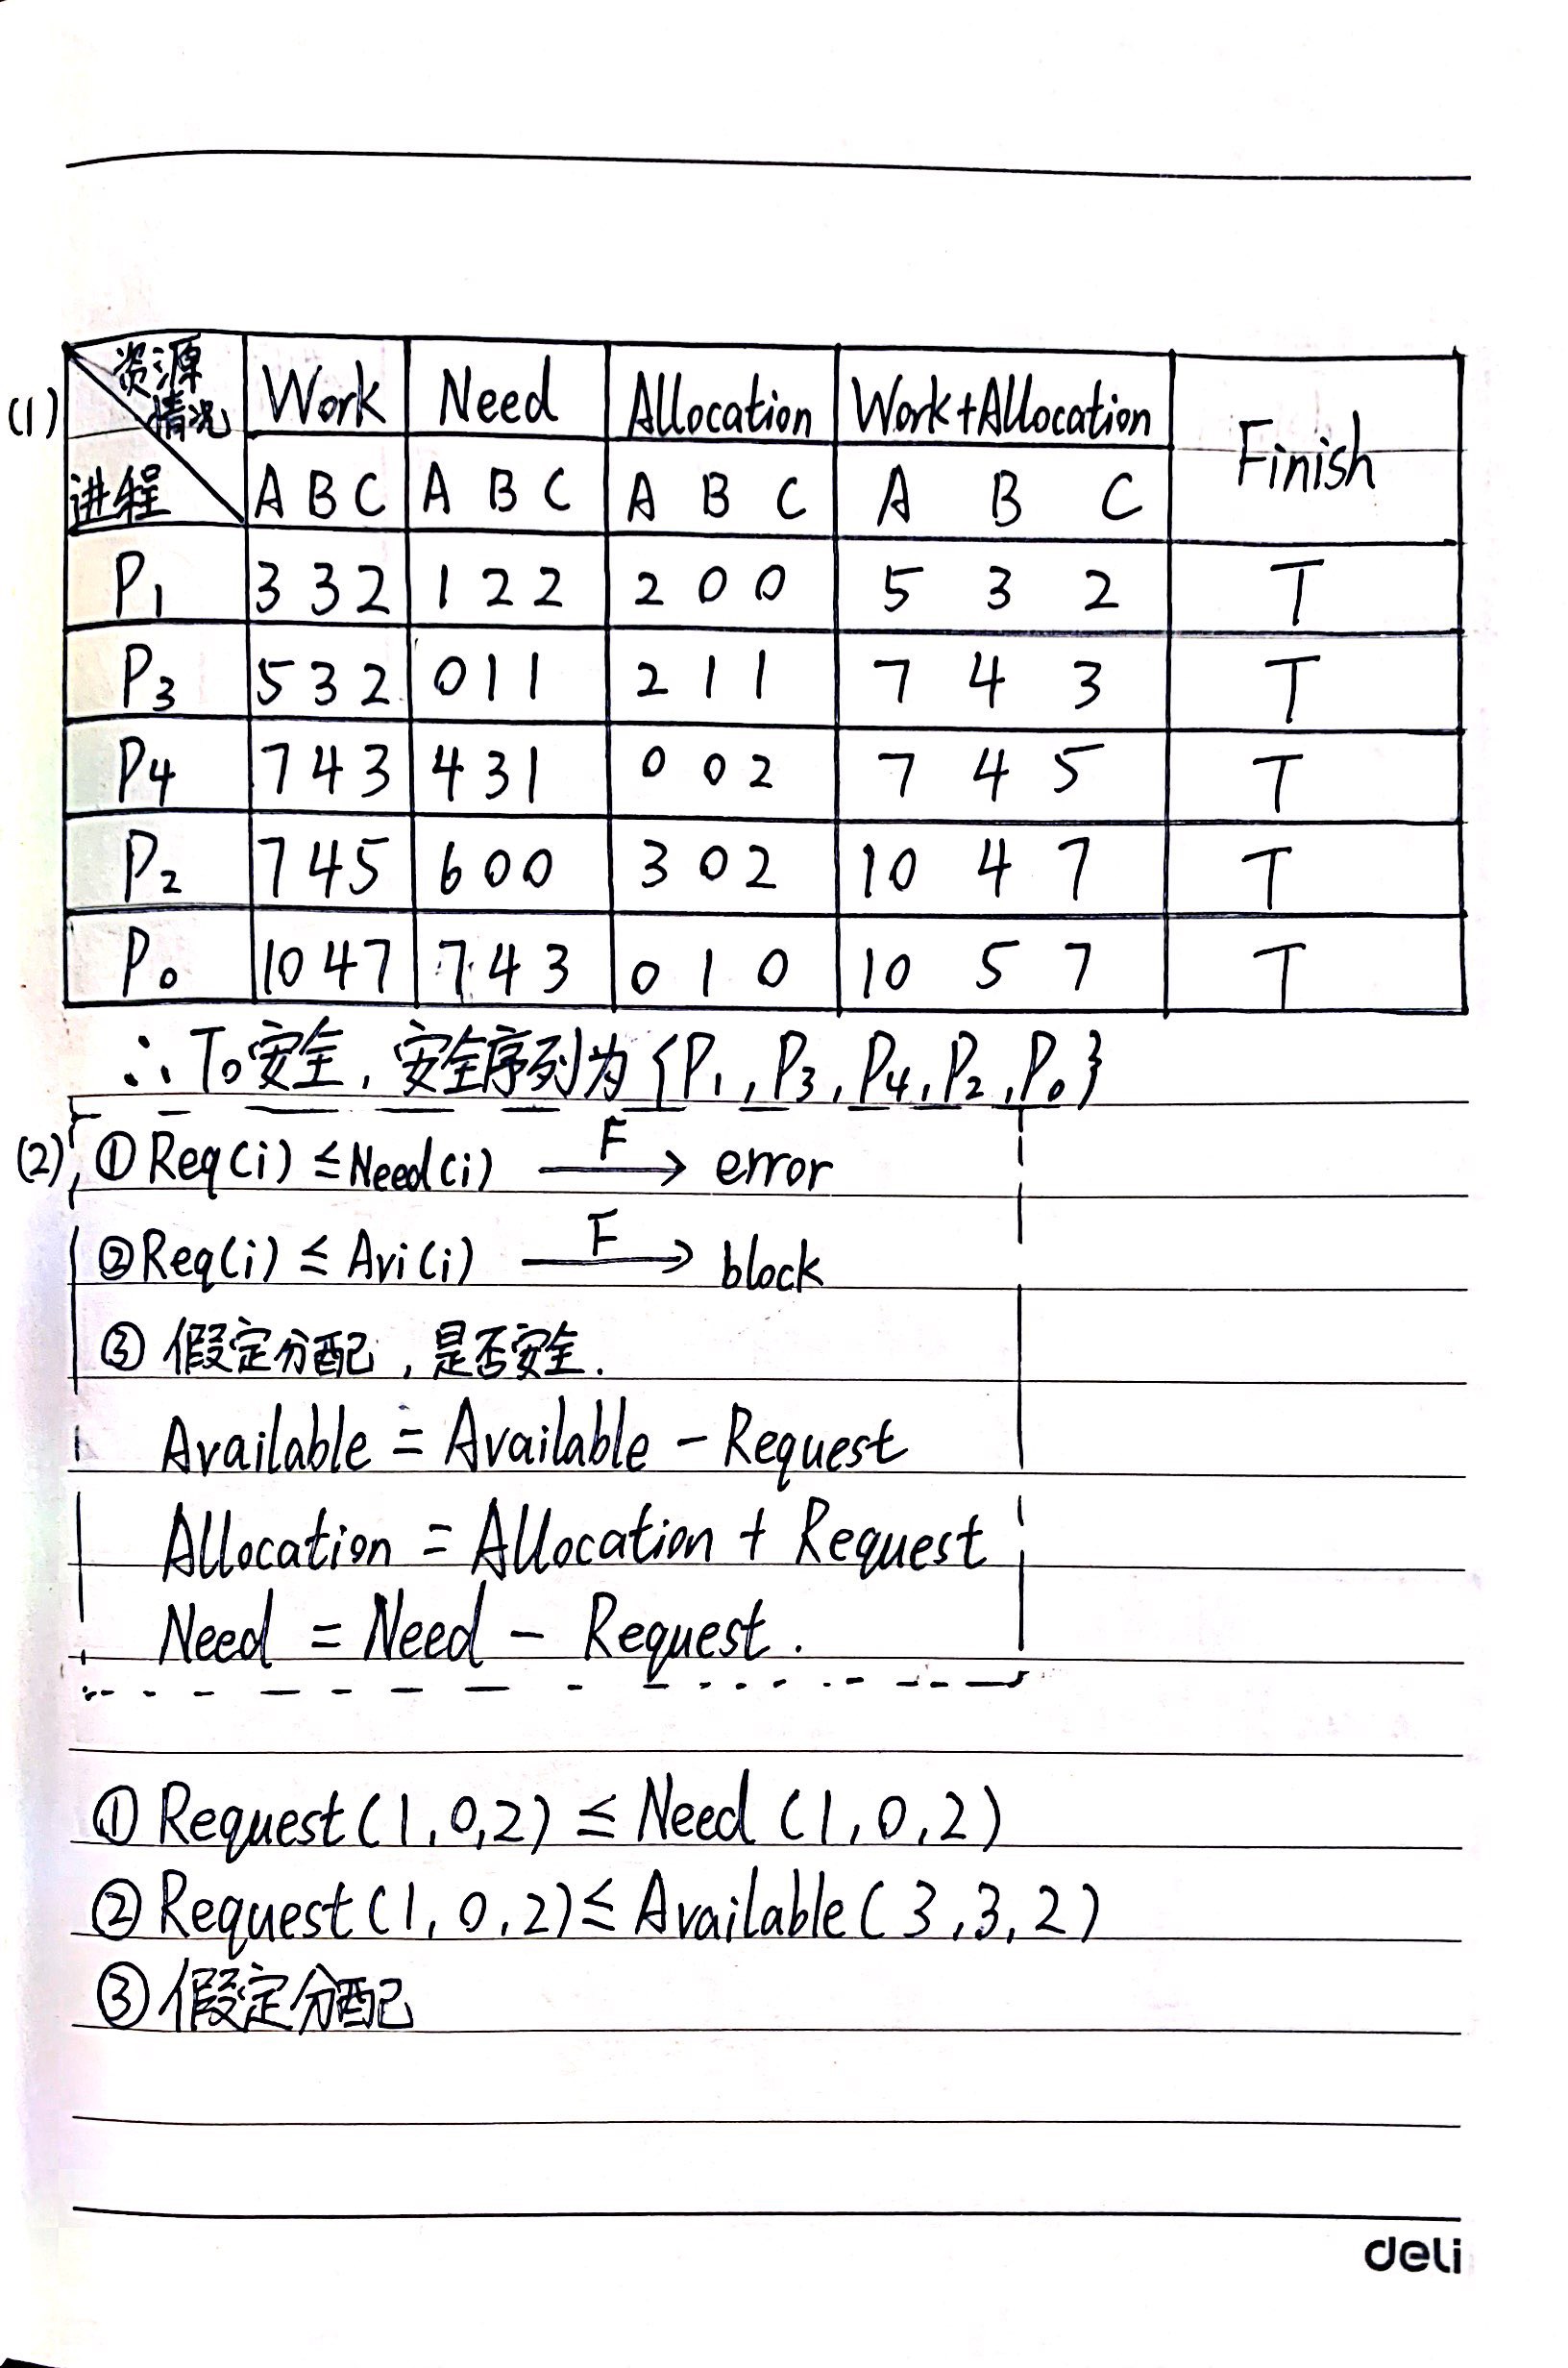 (1) 资源情况 Work Need Allocation Work+Allocation Finish
进程 A B C A B C A B C A B C
P1 3 3 2 1 2 2 2 0 0 5 3 2 T
P3 5 3 2 0 1 1 2 1 1 7 4 3 T
P4 7 4 3 4 3 1 0 0 2 7 4 5 T
P2 7 4 5 6 0 0 3 0 2 10 4 7 T
P0 10 4 7 7 4 3 0 1 0 10 5 7 T
∴ T0安全, 安全序列为 {P1, P3, P4, P2, P0}
(2) ① Req(i) ≤ Need(i) F → error
② Req(i) ≤ Avi(i) F → block
③ 假定分配, 是否安全.
Available = Available - Request
Allocation = Allocation + Request
Need = Need - Request.
① Request(1,0,2) ≤ Need (1,0,2)
② Request(1,0,2) ≤ Available(3,3,2)
③ 假定分配
deli